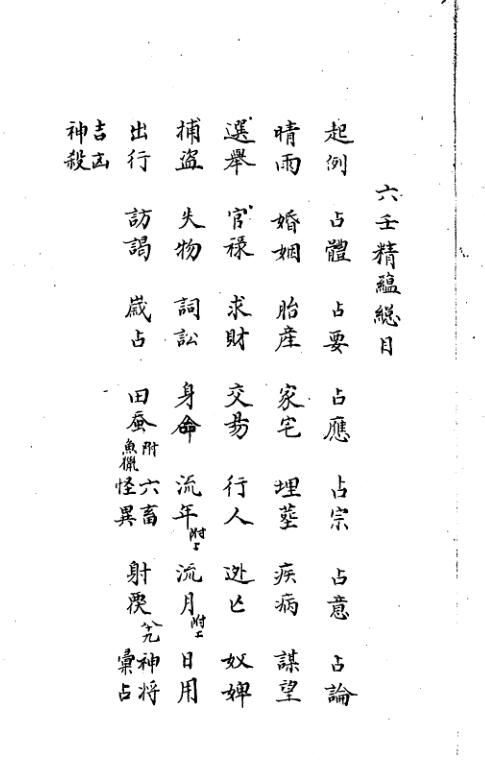 六壬精蘊總目
起例 占體 占要 占應 占宗 占意 占論
晴雨 婚姻 胎産 家宅 埋塟 疾病 謀望
選舉 官禄 求財 交昜 行人 迯亡 奴婢
捕盗 失物 詞訟 身命 流年附上 流月附上 日用
出行 訪謁 歳占 田蚕附魚獵 六畜怪異 射覆 神将彙占
吉凶神殺